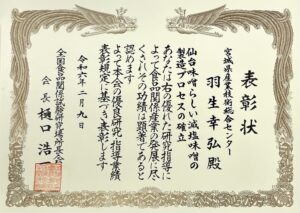 表彰状
宮城県産業技術総合センター
羽生幸弘殿
仙台味噌らしい減塩味噌の
製造プロセスの確立
あなたは右の優れた研究指導に
よって食品関係産業の発展に尽
くされその功績は顕著であると
認めます
よって本会の優良研究・指導業績
表彰規定に基づき表彰します
令和六年二月九日
全国食品関係試験研究場所長会
会長 樋口浩一